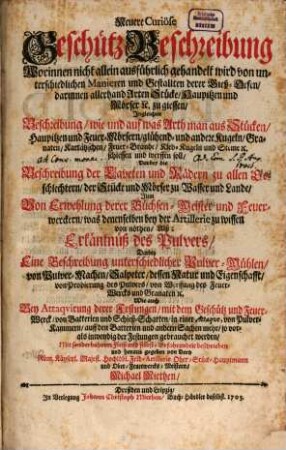 Neuere Curiöse
Geschütz Beschreibung
Worinnen nicht allein ausführlich gehandelt wird von un-
terschiedlichen Manieren und Gestalten derer Gieß-Oefen,
darinnen allerhand Arten Stücke, Haupitzen und
Mörser &c. zu giessen,
Ingleichen
Beschreibung, wie und auf was Arth man aus Stücken,
Haupitzen und Feuer-Mörsern, glühend- und andere Kugeln, Gra-
naten, Kartätzschen, Feuer-Brände, Kleb-Kugeln und Steine &c.
schiessen und werffen soll,
Beschreibung der Laveten und Rädern zu allen Ge-
schlechtern, der Stück und Mörser zu Wasser und Lande,
Von Erwehlung derer Büchsen-Meister und Feuer-
werckern, was denenselben bey der Artillerie zu wissen
von nöthen,
Erkäntniß des Pulvers,
Eine Beschreibung unterschiedlicher Pulver-Mühlen,
von Pulver-Machen, Salpeter, dessen Natur und Eigenschafft,
von Probierung des Pulvers, von Werffung des Feuer-
Wercks und Granaten &c.
Wie auch
Bey Attaqvirung derer Festungen, mit dem Geschütz und Feuer-
Werck, von Batterien und Schieß-Scharten, von Pulver-
Kammern, auff den Batterien und andern Sachen mehr, so vor-
als inwendig der Festungen gebrauchet werden,
und heraus gegeben von
Michael Miethen,
Dreßden und Leipzig,
In Verlegung Johann Christoph Miethen, Buch-Händler daselbst. 1705.